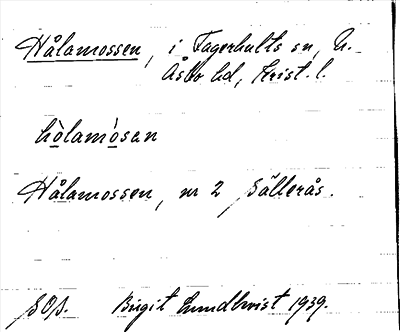 Hålamossen, i Fagerhults sn, N.
Åsbo hd, Krist. l.
hòlamòsan
Hålamossen, nr 2 Sällerås.
SOS. Birgit Lundkvist 1939.